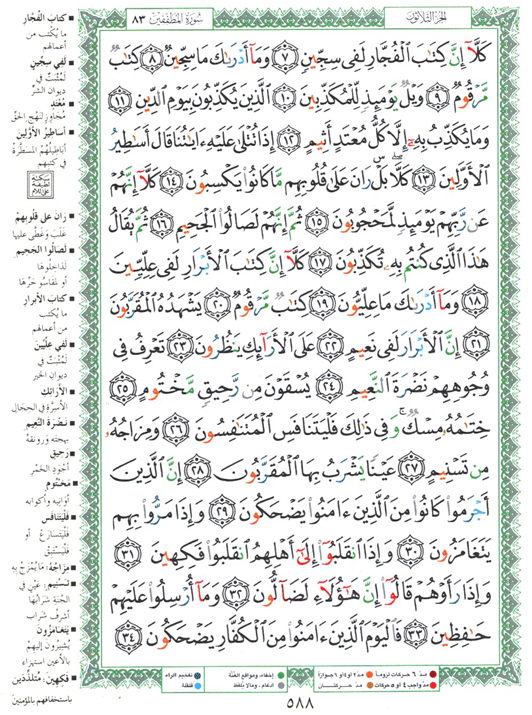 الجزء الثلاثون
سورة المطففين ٨٣
كَلَّا إِنَّ كِتَٰبَ ٱلْفُجَّارِ لَفِى سِجِّينٍ ٧ وَمَآ أَدْرَىٰكَ مَا سِجِّينٌ ٨ كِتَٰبٌ
مَّرْقُومٌ ٩ وَيْلٌ يَوْمَئِذٍ لِّلْمُكَذِّبِينَ ١٠ ٱلَّذِينَ يُكَذِّبُونَ بِيَوْمِ ٱلدِّينِ ١١
وَمَا يُكَذِّبُ بِهِۦٓ إِلَّا كُلُّ مُعْتَدٍ أَثِيمٍ ١٢ إِذَا تُتْلَىٰ عَلَيْهِ ءَايَٰتُنَا قَالَ أَسَٰطِيرُ
ٱلْأَوَّلِينَ ١٣ كَلَّا بَلْ ۜ رَانَ عَلَىٰ قُلُوبِهِم مَّا كَانُوا۟ يَكْسِبُونَ ١٤ كَلَّآ إِنَّهُمْ
عَن رَّبِّهِمْ يَوْمَئِذٍ لَّمَحْجُوبُونَ ١٥ ثُمَّ إِنَّهُمْ لَصَالُوا۟ ٱلْجَحِيمِ ١٦ ثُمَّ يُقَالُ
هَٰذَا ٱلَّذِى كُنتُم بِهِۦ تُكَذِّبُونَ ١٧ كَلَّآ إِنَّ كِتَٰبَ ٱلْأَبْرَارِ لَفِى عِلِّيِّينَ
١٨ وَمَآ أَدْرَىٰكَ مَا عِلِّيُّونَ ١٩ كِتَٰبٌ مَّرْقُومٌ ٢٠ يَشْهَدُهُ ٱلْمُقَرَّبُونَ
٢١ إِنَّ ٱلْأَبْرَارَ لَفِى نَعِيمٍ ٢٢ عَلَى ٱلْأَرَآئِكِ يَنظُرُونَ ٢٣ تَعْرِفُ فِى
وُجُوهِهِمْ نَضْرَةَ ٱلنَّعِيمِ ٢٤ يُسْقَوْنَ مِن رَّحِيقٍ مَّخْتُومٍ ٢٥
خِتَٰمُهُۥ مِسْكٌ ۚ وَفِى ذَٰلِكَ فَلْيَتَنَافَسِ ٱلْمُتَنَٰفِسُونَ ٢٦ وَمِزَاجُهُۥ
مِن تَسْنِيمٍ ٢٧ عَيْنًا يَشْرَبُ بِهَا ٱلْمُقَرَّبُونَ ٢٨ إِنَّ ٱلَّذِينَ
أَجْرَمُوا۟ كَانُوا۟ مِنَ ٱلَّذِينَ ءَامَنُوا۟ يَضْحَكُونَ ٢٩ وَإِذَا مَرُّوا۟ بِهِمْ
يَتَغَامَزُونَ ٣٠ وَإِذَا ٱنقَلَبُوٓا۟ إِلَىٰٓ أَهْلِهِمُ ٱنقَلَبُوا۟ فَكِهِينَ ٣١
وَإِذَا رَأَوْهُمْ قَالُوٓا۟ إِنَّ هَٰٓؤُلَآءِ لَضَآلُّونَ ٣٢ وَمَآ أُرْسِلُوا۟ عَلَيْهِمْ
حَٰفِظِينَ ٣٣ فَٱلْيَوْمَ ٱلَّذِينَ ءَامَنُوا۟ مِنَ ٱلْكُفَّارِ يَضْحَكُونَ ٣٤
كتاب الفُجّار
ما يُكتب من
أعمالهم
لفي سجّين
لمُثبَتٌ في
ديوان الشرّ
مُعْتَدٍ
مُتجاوزٍ لنهج الحقّ
أساطير الأوّلين
أباطيلُهُم المسطّرة
في كتبهم
سكتة
لطيفة
على اللام
ران على قلوبهم
غلب وغطّى عليها
لصالوا الجحيم
لداخلوها
أو لمقاسُو حرّها
كتاب الأبرار
ما يُكتب
من أعمالهم
لفي علّيّين
لمُثبَتٌ في
ديوان الخير
الأرائك
الأسرّة في الحجال
نضرة النّعيم
بهجته ورونقه
رحيق
أجود الخمر
مختوم
أوانيه وأكوابه
فليتنافس
فليتسارع أو
فليستبق
مزاجه: ما يُمزج به
تسنيم: عين في
الجنّة شرابها
أشرف شراب
يتغامزون
يُشيرون إليهم
بالأعين استهزاء
فكهين: متلذّذين
باستخفافهم بالمؤمنين
مدّ ٦ حركات لزوماً
مدّ ٢ أو ٤ أو ٦ جوازاً
إخفاء، ومواقع الغُنّة
تفخيم الراء
مدّ واجب ٤ أو ٥ حركات
مدّ حركتان
ادغام، وما لا يُلفظ
قلقلة
٥٨٨